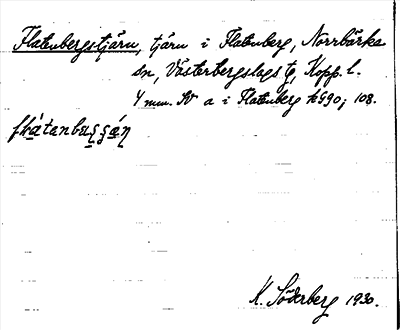 Flatenbergstjärn, tjärn i Flatenberg, Norrbärke
sn, Västerbergslags t, Kopp. l.
4 mm. SV a i Flatenberg hGGO; 108.
flàtanbus̩s̩án̩
K. Söderberg 1930.